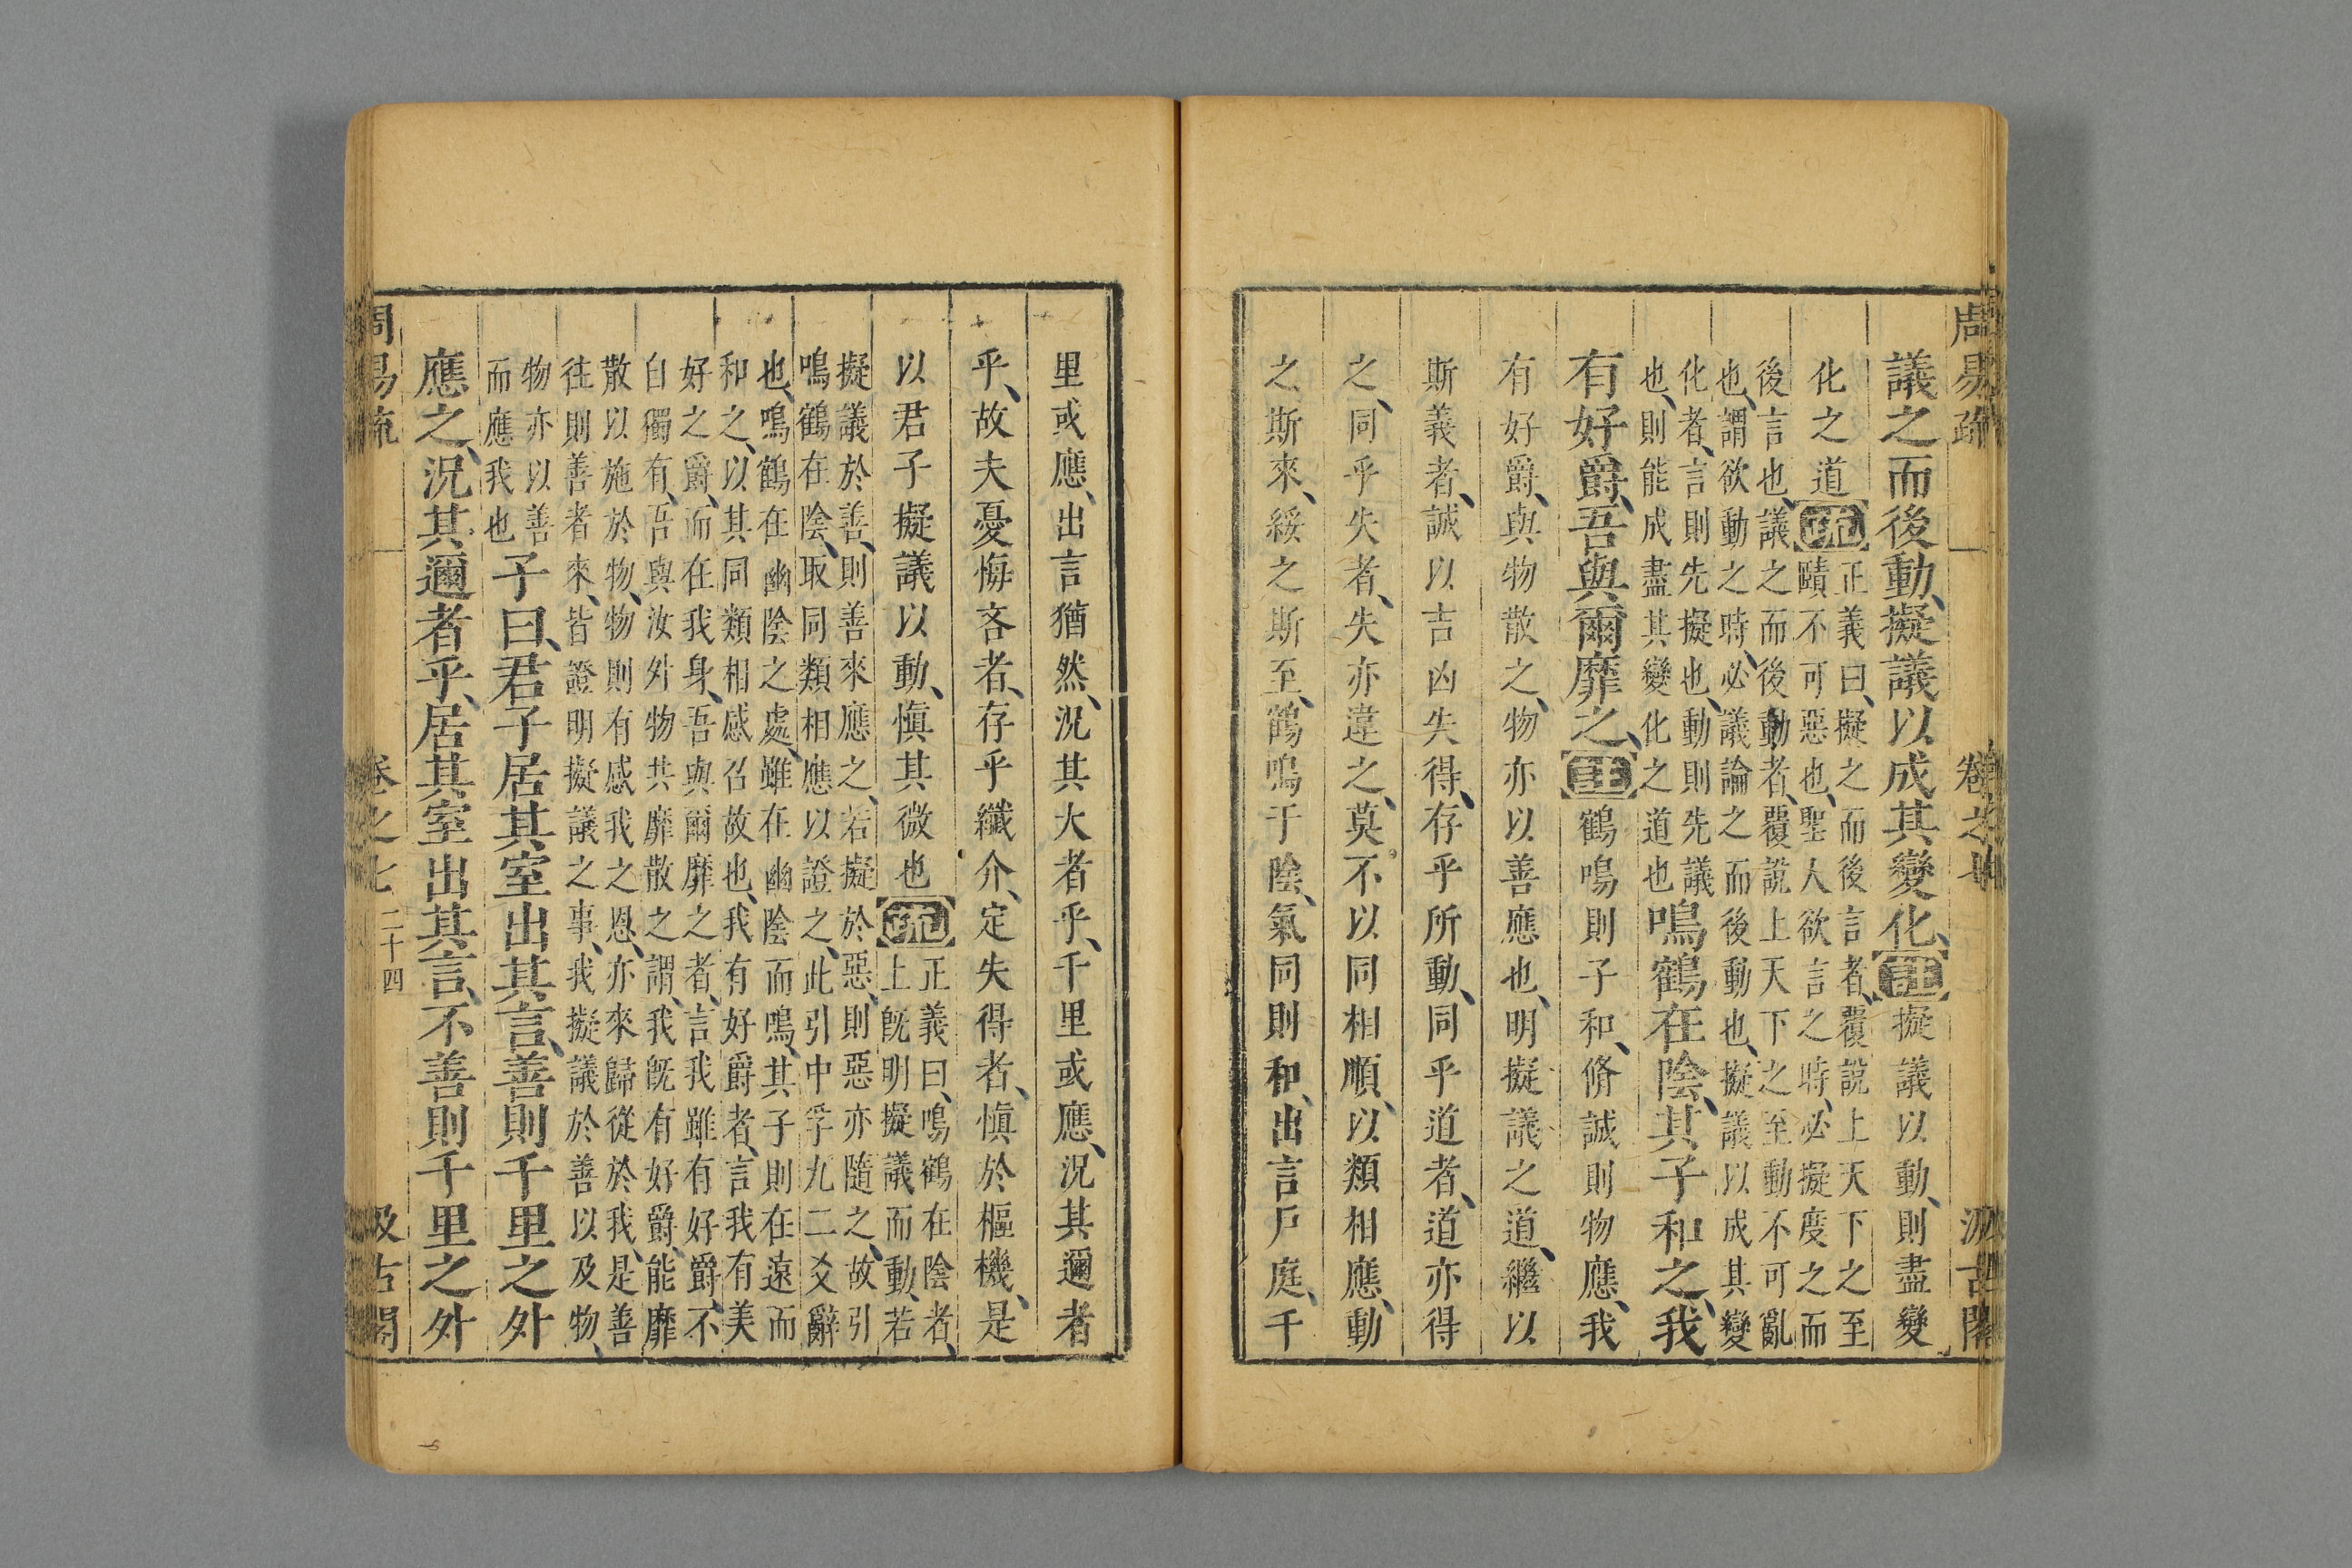 周易疏 卷之七 汲古閣
議之而後動、擬議以成其變化、註擬議以動、則盡變
化之道疏正義曰、擬之而後言者、覆說上天下之至
賾不可惡也、聖人欲言之時、必擬度之而
後言也、議之而後動者、覆說上天下之至動不可亂
也、謂欲動之時、必議論之而後動也、擬議以成其變
化者、言則先擬也、動則先議
也、則能成盡其變化之道也鳴鶴在陰、其子和之、我
有好爵、吾與爾靡之、註鶴鳴則子和、脩誠則物應、我
有好爵、與物散之、物亦以善應也、明擬議之道、繼以
斯義者、誠以吉凶失得、存乎所動、同乎道者、道亦得
之、同乎失者、失亦違之、莫不以同相順、以類相應、動
之斯來、綏之斯至、鶴鳴于陰、氣同則和、出言戶庭、千
里或應、出言猶然、況其大者乎、千里或應、況其邇者
乎、故夫憂悔吝者、存乎纖介、定失得者、慎於樞機、是
以君子擬議以動、慎其微也疏正義曰、鳴鶴在陰者、
上旣明擬議而動、若
擬議於善、則善來應之、若擬於惡、則惡亦隨之、故引
鳴鶴在陰、取同類相應以證之、此引中孚九二爻辭
也、鳴鶴在幽陰之處、雖在幽陰而鳴、其子則在遠而
和之、以其同類相感召故也、我有好爵者、言我有美
好之爵、而在我身、吾與爾靡之者、言我雖有好爵、不
自獨有、吾與汝外物共靡散之謂、我旣有好爵、能靡
散以施於物、物則有感我之恩、亦來歸從於我、是善
往則善者來、皆證明擬議之事、我擬議於善以及物、
物亦以善
而應我也子曰、君子居其室出其言、善則千里之外
應之、況其邇者乎、居其室出其言、不善則千里之外
周易疏 卷之七 二十四 汲古閣